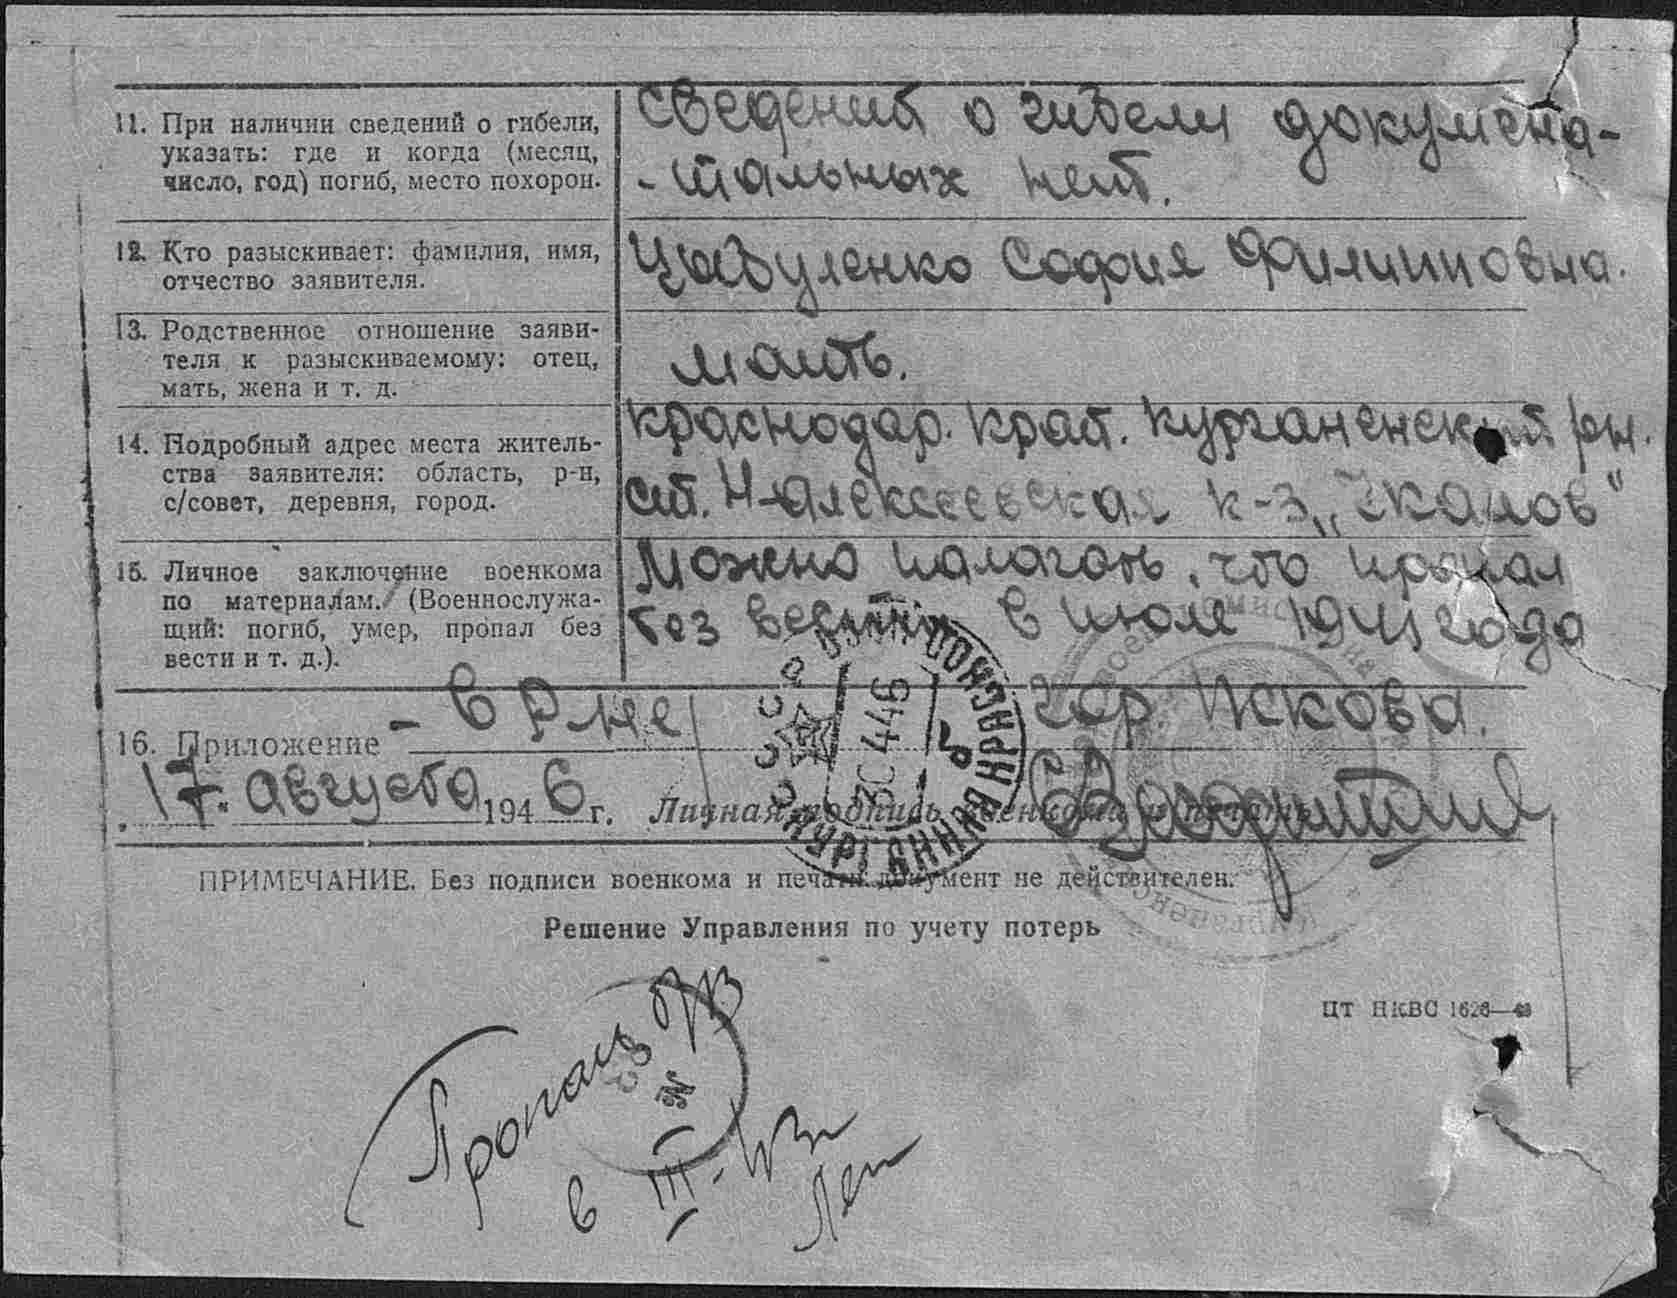 11. При наличии сведений о гибели,
указать: где и когда (месяц,
число, год) погиб, место похорон.
Сведений о гибели докумена-
-тальных нет.
12. Кто разыскивает: фамилия, имя,
отчество заявителя.
Цыбуленко София Филипповна.
13. Родственное отношение заяви-
теля к разыскиваемому: отец,
мать, жена и т. д.
мать.
14. Подробный адрес места житель-
ства заявителя: область, р-н,
с/совет, деревня, город.
Краснодар. край. Курганенский рн.
ст. Н-алексеевская к-з „Чкалов"
15. Личное заключение военкома
по материалам. (Военнослужа-
щий: погиб, умер, пропал без
вести и т. д.).
Можно палагать, что пропал
без вести в июле 1941 года
- в р-не гор. Пскова.
16. Приложение
17. августа 1946 г. Личная подпись военкома и печать
ПРИМЕЧАНИЕ. Без подписи военкома и печати документ не действителен.
Решение Управления по учету потерь
ЦТ НКВС 1626—
Пропал б/в
в III-43